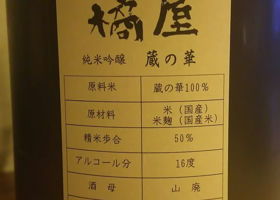 橘屋
純米吟醸 蔵の華
原料米 蔵の華100%
原材料 米(国産)
米麹(国産米)
精米歩合 50%
アルコール分 16度
酒母 山廃